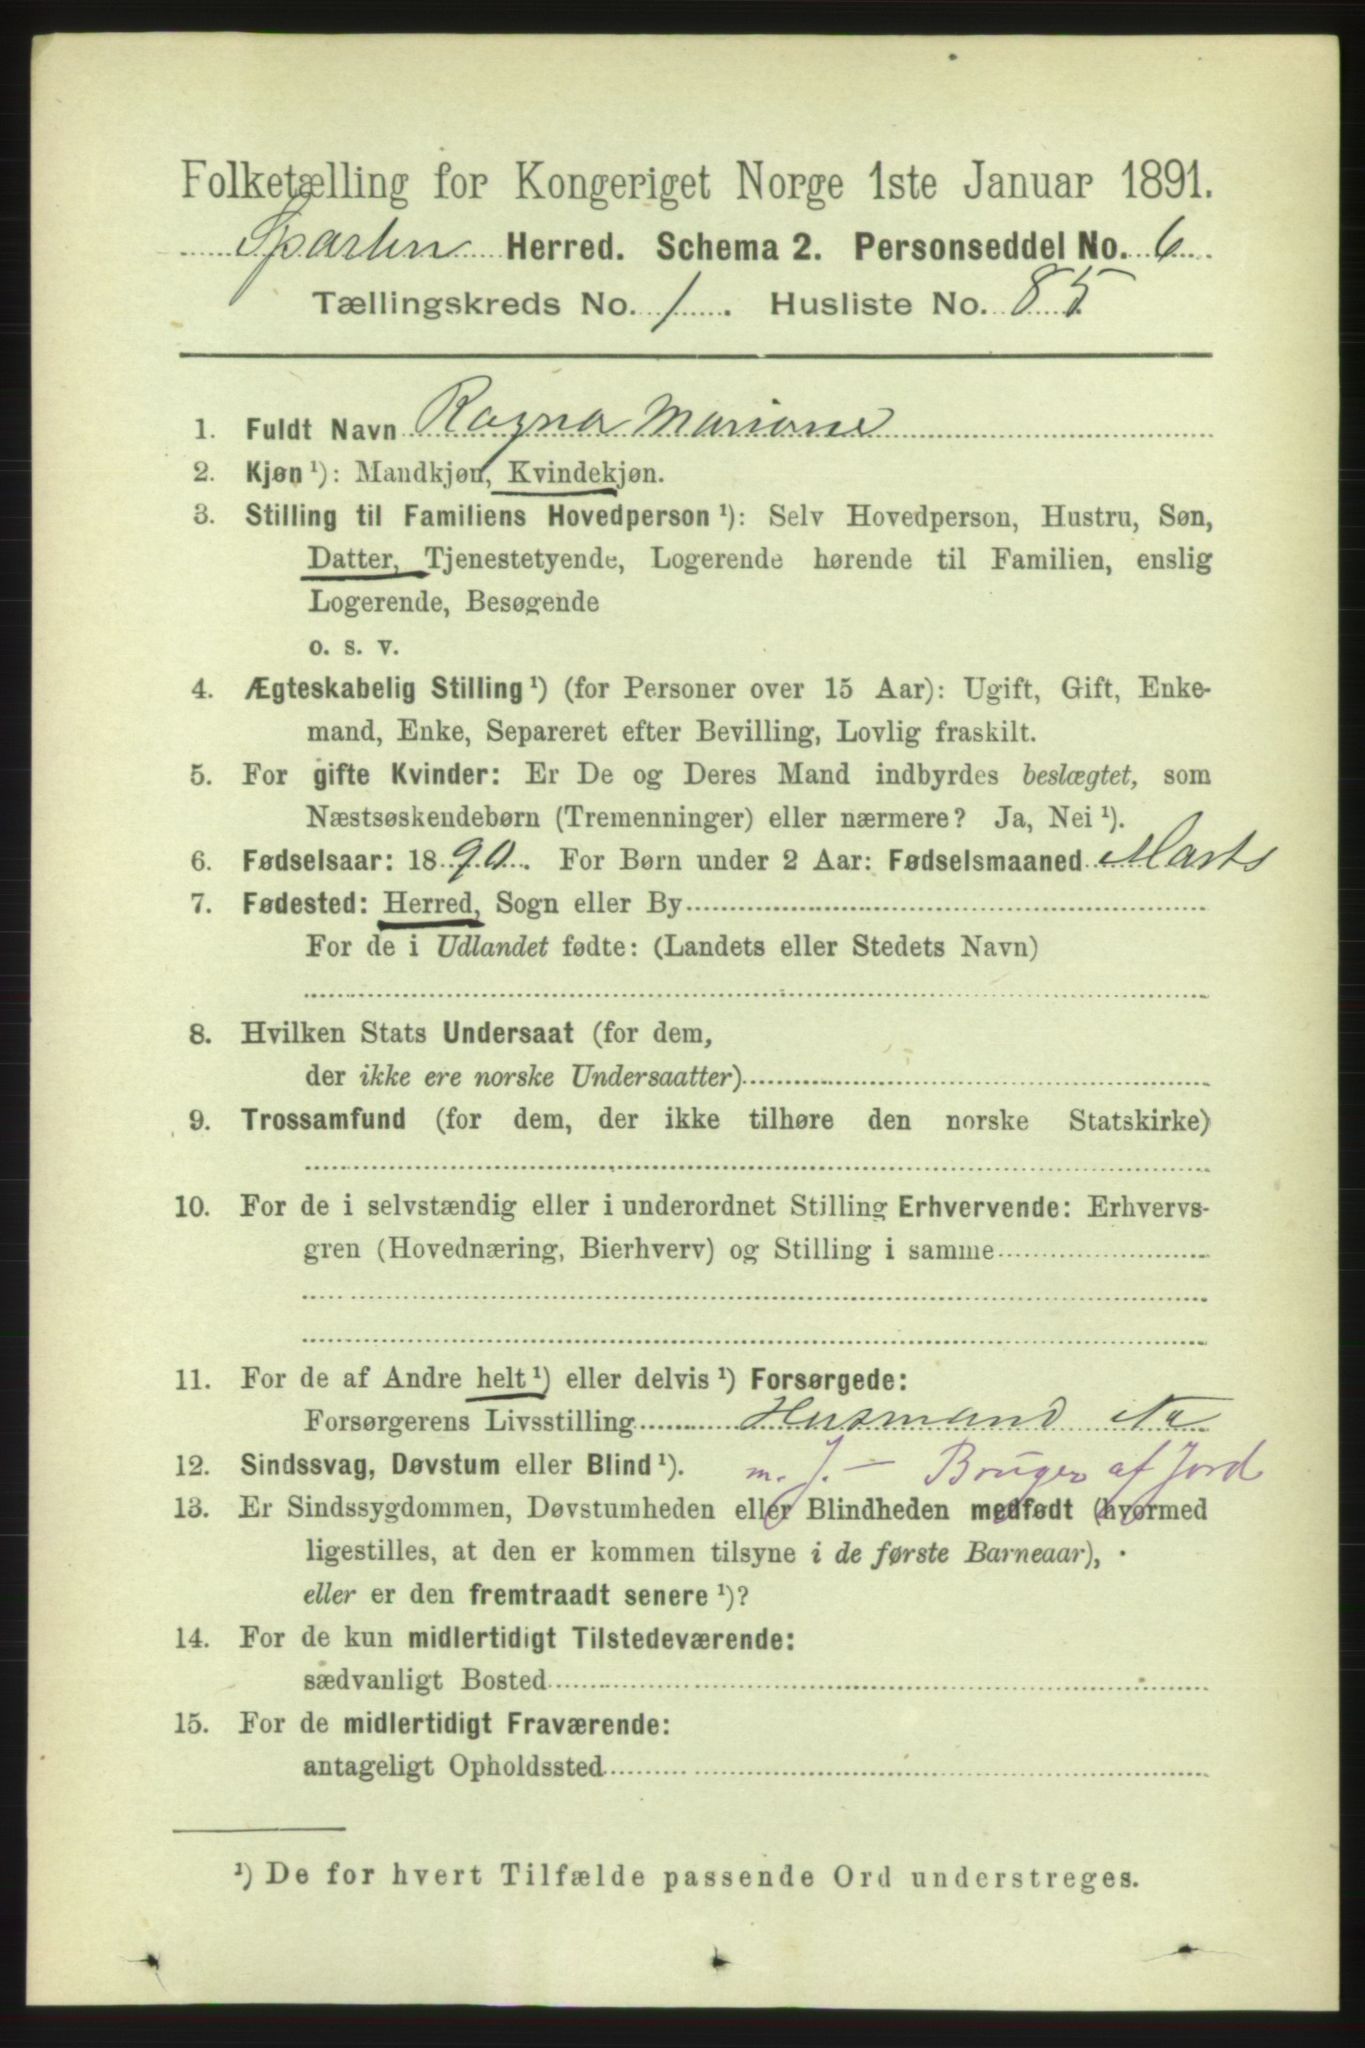 Folketælling for Kongeriget Norge 1ste Januar 1891.
Sparbu Herred. Schema 2. Personseddel No. 6
Tællingskreds No. 1. Husliste No. 85
1. Fuldt Navn Ragna Marianne
2. Kjøn ¹): Mandkjøn, Kvindekjøn.
3. Stilling til Familiens Hovedperson ¹): Selv Hovedperson, Hustru, Søn,
Datter, Tjenestetyende, Logerende hørende til Familien, enslig
Logerende, Besøgende
o. s. v.
4. Ægteskabelig Stilling ¹) (for Personer over 15 Aar): Ugift, Gift, Enke-
mand, Enke, Separeret efter Bevilling, Lovlig fraskilt.
5. For gifte Kvinder: Er De og Deres Mand indbyrdes beslægtet, som
Næstsøskendebørn (Tremenninger) eller nærmere? Ja, Nei ¹).
6. Fødselsaar: 1890. For Børn under 2 Aar: Fødselsmaaned Marts
7. Fødested: Herred, Sogn eller By
For de i Udlandet fødte: (Landets eller Stedets Navn)
8. Hvilken Stats Undersaat (for dem,
der ikke ere norske Undersaatter)
9. Trossamfund (for dem, der ikke tilhøre den norske Statskirke)
10. For de i selvstændig eller i underordnet Stilling Erhvervende: Erhvervs-
gren (Hovednæring, Bierhverv) og Stilling i samme
11. For de af Andre helt ¹) eller delvis ¹) Forsørgede:
Forsørgerens Livsstilling Husmand
12. Sindssvag, Døvstum eller Blind ¹). m. J. — Bruger af Jord
13. Er Sindssygdommen, Døvstumheden eller Blindheden medfødt (hvormed
ligestilles, at den er kommen tilsyne i de første Barneaar),
eller er den fremtraadt senere ¹)?
14. For de kun midlertidigt Tilstedeværende:
sædvanligt Bosted
15. For de midlertidigt Fraværende:
antageligt Opholdssted
¹) De for hvert Tilfælde passende Ord understreges.